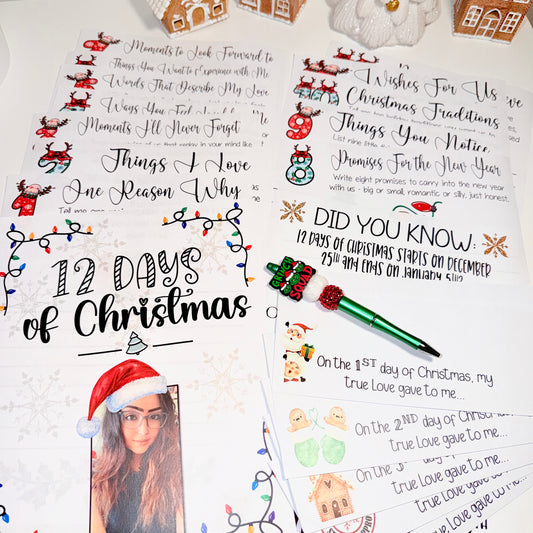 Moments to Look Forward to
Things You Want to Experience with Me
Words That Describe My Love
Ways You Feel
Moments I'll Never Forget
2
Things I Love
1
One Reason Why
Tell me one
12 DAYS
of Christmas
Wishes For Us
Christmas Traditions
9
Things You Notice
List nine little
8
Promises For the New Year
Write eight promises to carry into the new year
with us - big or small, romantic or silly, just honest.
DID YOU KNOW:
12 DAYS OF CHRISTMAS STARTS ON DECEMBER
25TH AND ENDS ON JANUARY 5TH?
GRINCH
SQUAD
On the 1ST day of Christmas, my
true Love gave to me...
On the 2ND day of Christ
true Love gave to me...
On the 3
true Love gave to me...
true Love gave to me...